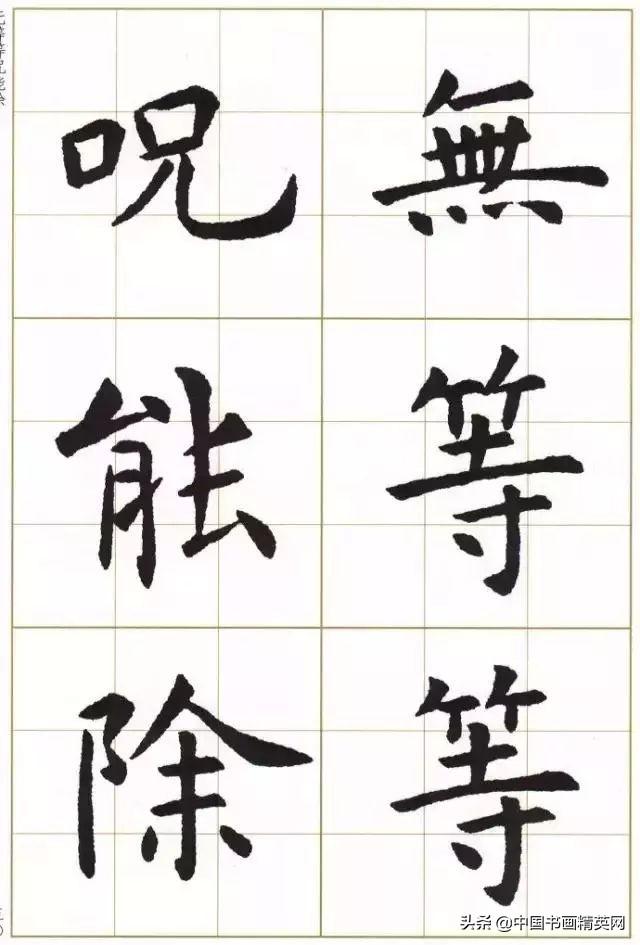 無等等
呪能除
头条@中国书画精英网